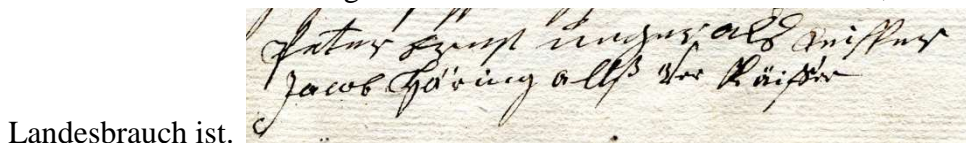 Peter Ernst unger als
Jacob Häring allß Ver Käiffer
Landesbrauch ist.